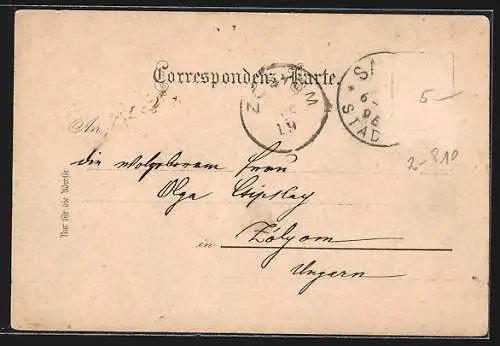 Correspondenz-Karte.
5-
STAD
2-810
An
die wolgeborene Frau
Olga
in Zólyom
Ungarn
Nur für die Adresse